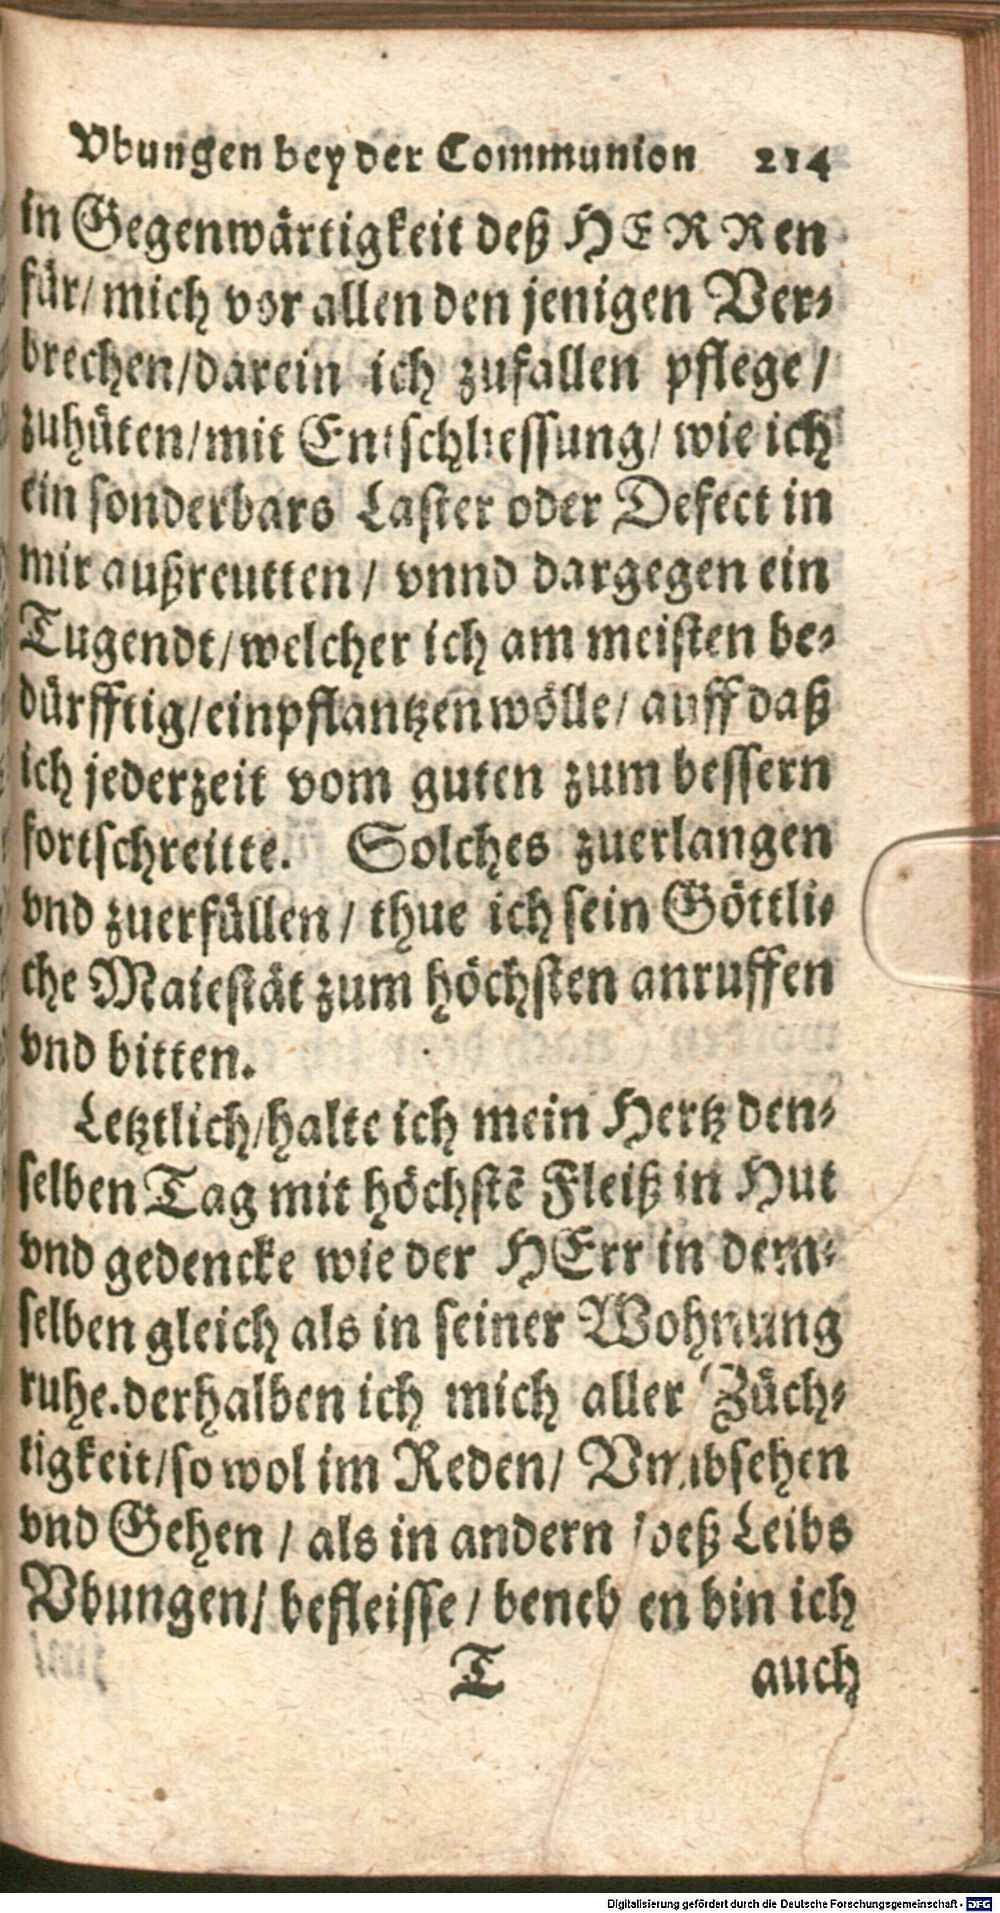 Vbungen bey der Communion 214
in Gegenwärtigkeit deß HERRen
für/ mich vor allen den jenigen Ver-
brechen/darein ich zufallen pflege/
zuhüten/mit Entschliessung/ wie ich
ein sonderbars Laster oder Defect in
mir außreutten/ vnnd dargegen ein
Tugendt/welcher ich am meisten be-
dürfftig/einpflantzen wölle/ auff daß
ich jederzeit vom guten zum bessern
fortschreitte. Solches zuerlangen
vnd zuerfüllen/ thue ich sein Göttli-
che Maiestät zum höchsten anruffen
vnd bitten.
Letztlich/halte ich mein Hertz den-
selben Tag mit höchstẽ Fleiß in Hut
vnd gedencke wie der HErr in dem-
selben gleich als in seiner Wohnung
ruhe.derhalben ich mich aller Züch-
tigkeit/so wol im Reden/ Vmbsehen
vnd Gehen/ als in andern deß Leibs
Vbungen/ befleisse/ beneb en bin ich
T auch
Digitalisierung gefördert durch die Deutsche Forschungsgemeinschaft - DFG